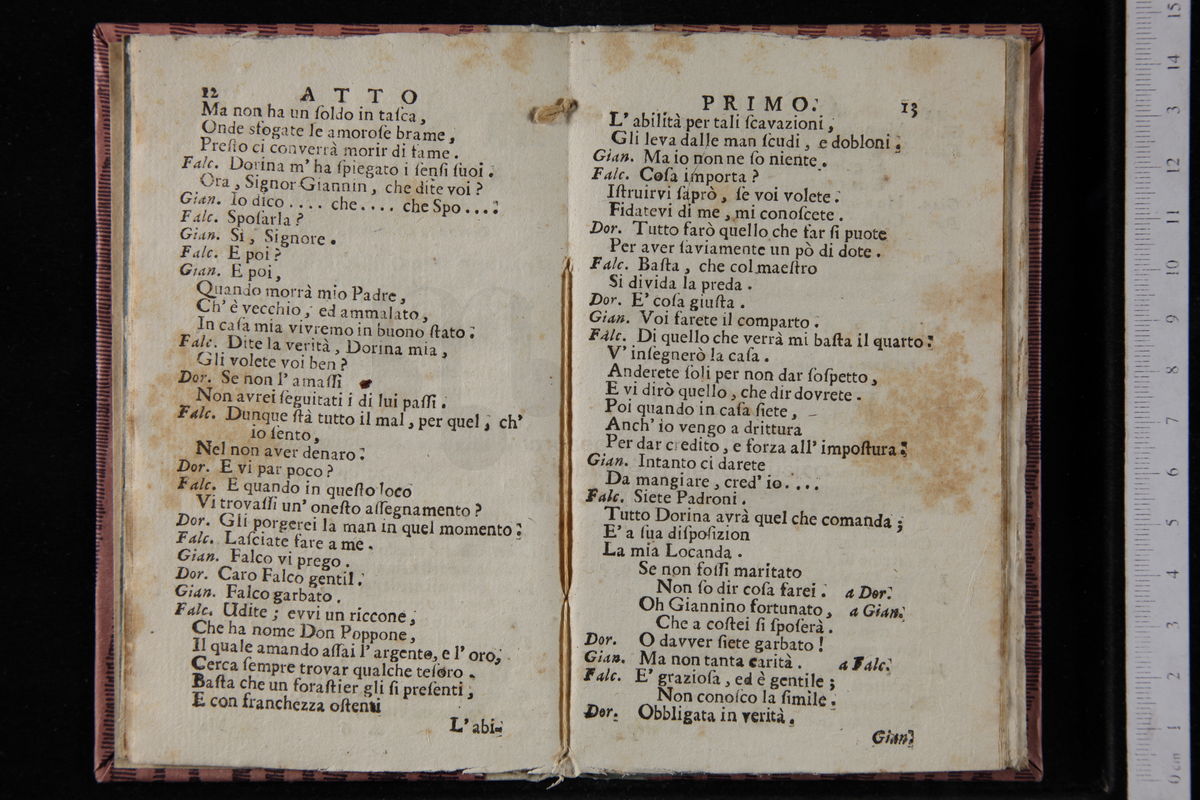 12 ATTO
Ma non ha un ſoldo in taſca,
Onde sfogate le amoroſe brame,
Preſto ci converrà morir di fame.
Falc. Dorina m' ha ſpiegato i ſenſi ſuoi.
Ora, Signor Giannin, che dite voi?
Gian. Io dico .... che .... che Spo ....
Falc. Spoſarla?
Gian. Sì, Signore.
Falc. E poi?
Gian. E poi,
Quando morrà mio Padre,
Ch' è vecchio, ed ammalato,
In caſa mia vivremo in buono ſtato.
Falc. Dite la verità, Dorina mia,
Gli volete voi ben?
Dor. Se non l' amaſſi
Non avrei ſeguitati i di lui paſſi.
Falc. Dunque ſtà tutto il mal, per quel, ch'
io ſento,
Nel non aver denaro.
Dor. E vi par poco?
Falc. E quando in queſto loco
Vi trovaſſi un' oneſto aſſegnamento?
Dor. Gli porgerei la man in quel momento.
Falc. Laſciate fare a me.
Gian. Falco vi prego.
Dor. Caro Falco gentil.
Gian. Falco garbato.
Falc. Udite; evvi un riccone,
Che ha nome Don Poppone,
Il quale amando aſſai l' argento, e l' oro,
Cerca ſempre trovar qualche teſoro.
Baſta che un foraſtier gli ſi preſenti,
E con franchezza oſtenti
L' abi-
PRIMO. 13
L' abilità per tali ſcavazioni,
Gli leva dalle man ſcudi, e dobloni.
Gian. Ma io non ne ſo niente.
Falc. Coſa importa?
Iſtruirvi ſaprò, ſe voi volete.
Fidatevi di me, mi conoſcete.
Dor. Tutto farò quello che far ſi puote
Per aver ſaviamente un pò di dote.
Falc. Baſta, che col maeſtro
Si divida la preda.
Dor. E' coſa giuſta.
Gian. Voi farete il comparto.
Falc. Di quello che verrà mi baſta il quarto.
V' inſegnerò la caſa.
Anderete ſoli per non dar ſoſpetto,
E vi dirò quello, che dir dovrete.
Poi quando in caſa ſiete,
Anch' io vengo a drittura
Per dar credito, e forza all' impoſtura.
Gian. Intanto ci darete
Da mangiare, cred' io....
Falc. Siete Padroni.
Tutto Dorina avrà quel che comanda;
E' a ſua diſpoſizion
La mia Locanda.
Se non foſſi maritato
Non ſo dir coſa farei. a Dor.
Oh Giannino fortunato, a Gian.
Che a coſtei ſi ſpoſerà.
Dor. O davver ſiete garbato!
Gian. Ma non tanta carità. a Falc.
Falc. E' grazioſa, ed è gentile;
Non conoſco la ſimile.
Dor. Obbligata in verità.
Gian.